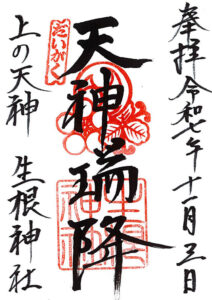 奉拝 令和七年十一月三日
だいがく
天神瑞降
上の天神 生根神社